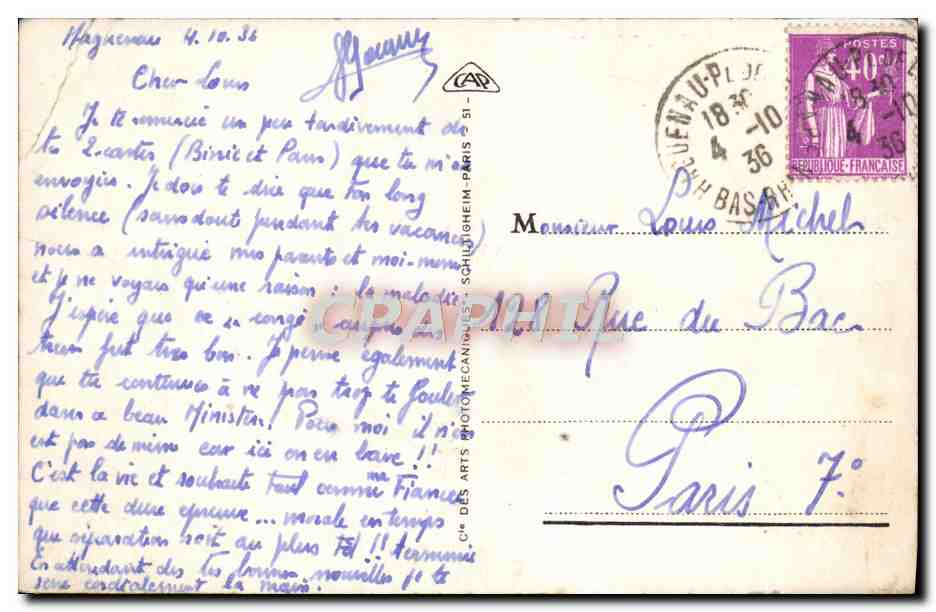 Haguenau 4.10.36
Cher Louis
Je te remercie un peu tardivement de
tes 2 cartes (Binic et Paris) que tu m'as
envoyées. Je dois te dire que ton long
silence (sans doute pendant tes vacances)
nous a intrigué mes parents et moi-même
et je ne voyais qu'une raison : la maladie
J'espère que ce "congé" auprès des
tiens fut très bon. Je pense également
que tu continues à ne pas trop te fouler
dans ce beau Ministère. Pour moi il n'en
est pas de même car ici on en bave !!
C'est la vie et souhaite tout comme ma Fiancée
que cette dure épreuve... morale en temps
que séparation soit au plus tôt !! terminée
En attendant de tes bonnes nouvelles je te
serre cordialement la main.
CAP
Cie DES ARTS PHOTOMECANIQUES - SCHILTIGHEIM-PARIS - 51 -
HAGUENAU-PL DE
18 30
4 -10
36
BAS-RHIN
POSTES
40c
REPUBLIQUE-FRANÇAISE
HAGUENAU-PL DE
18 30
4 -10
36
Monsieur Louis Michel
121 Rue du Bac
Paris 7°
CPAPHIL